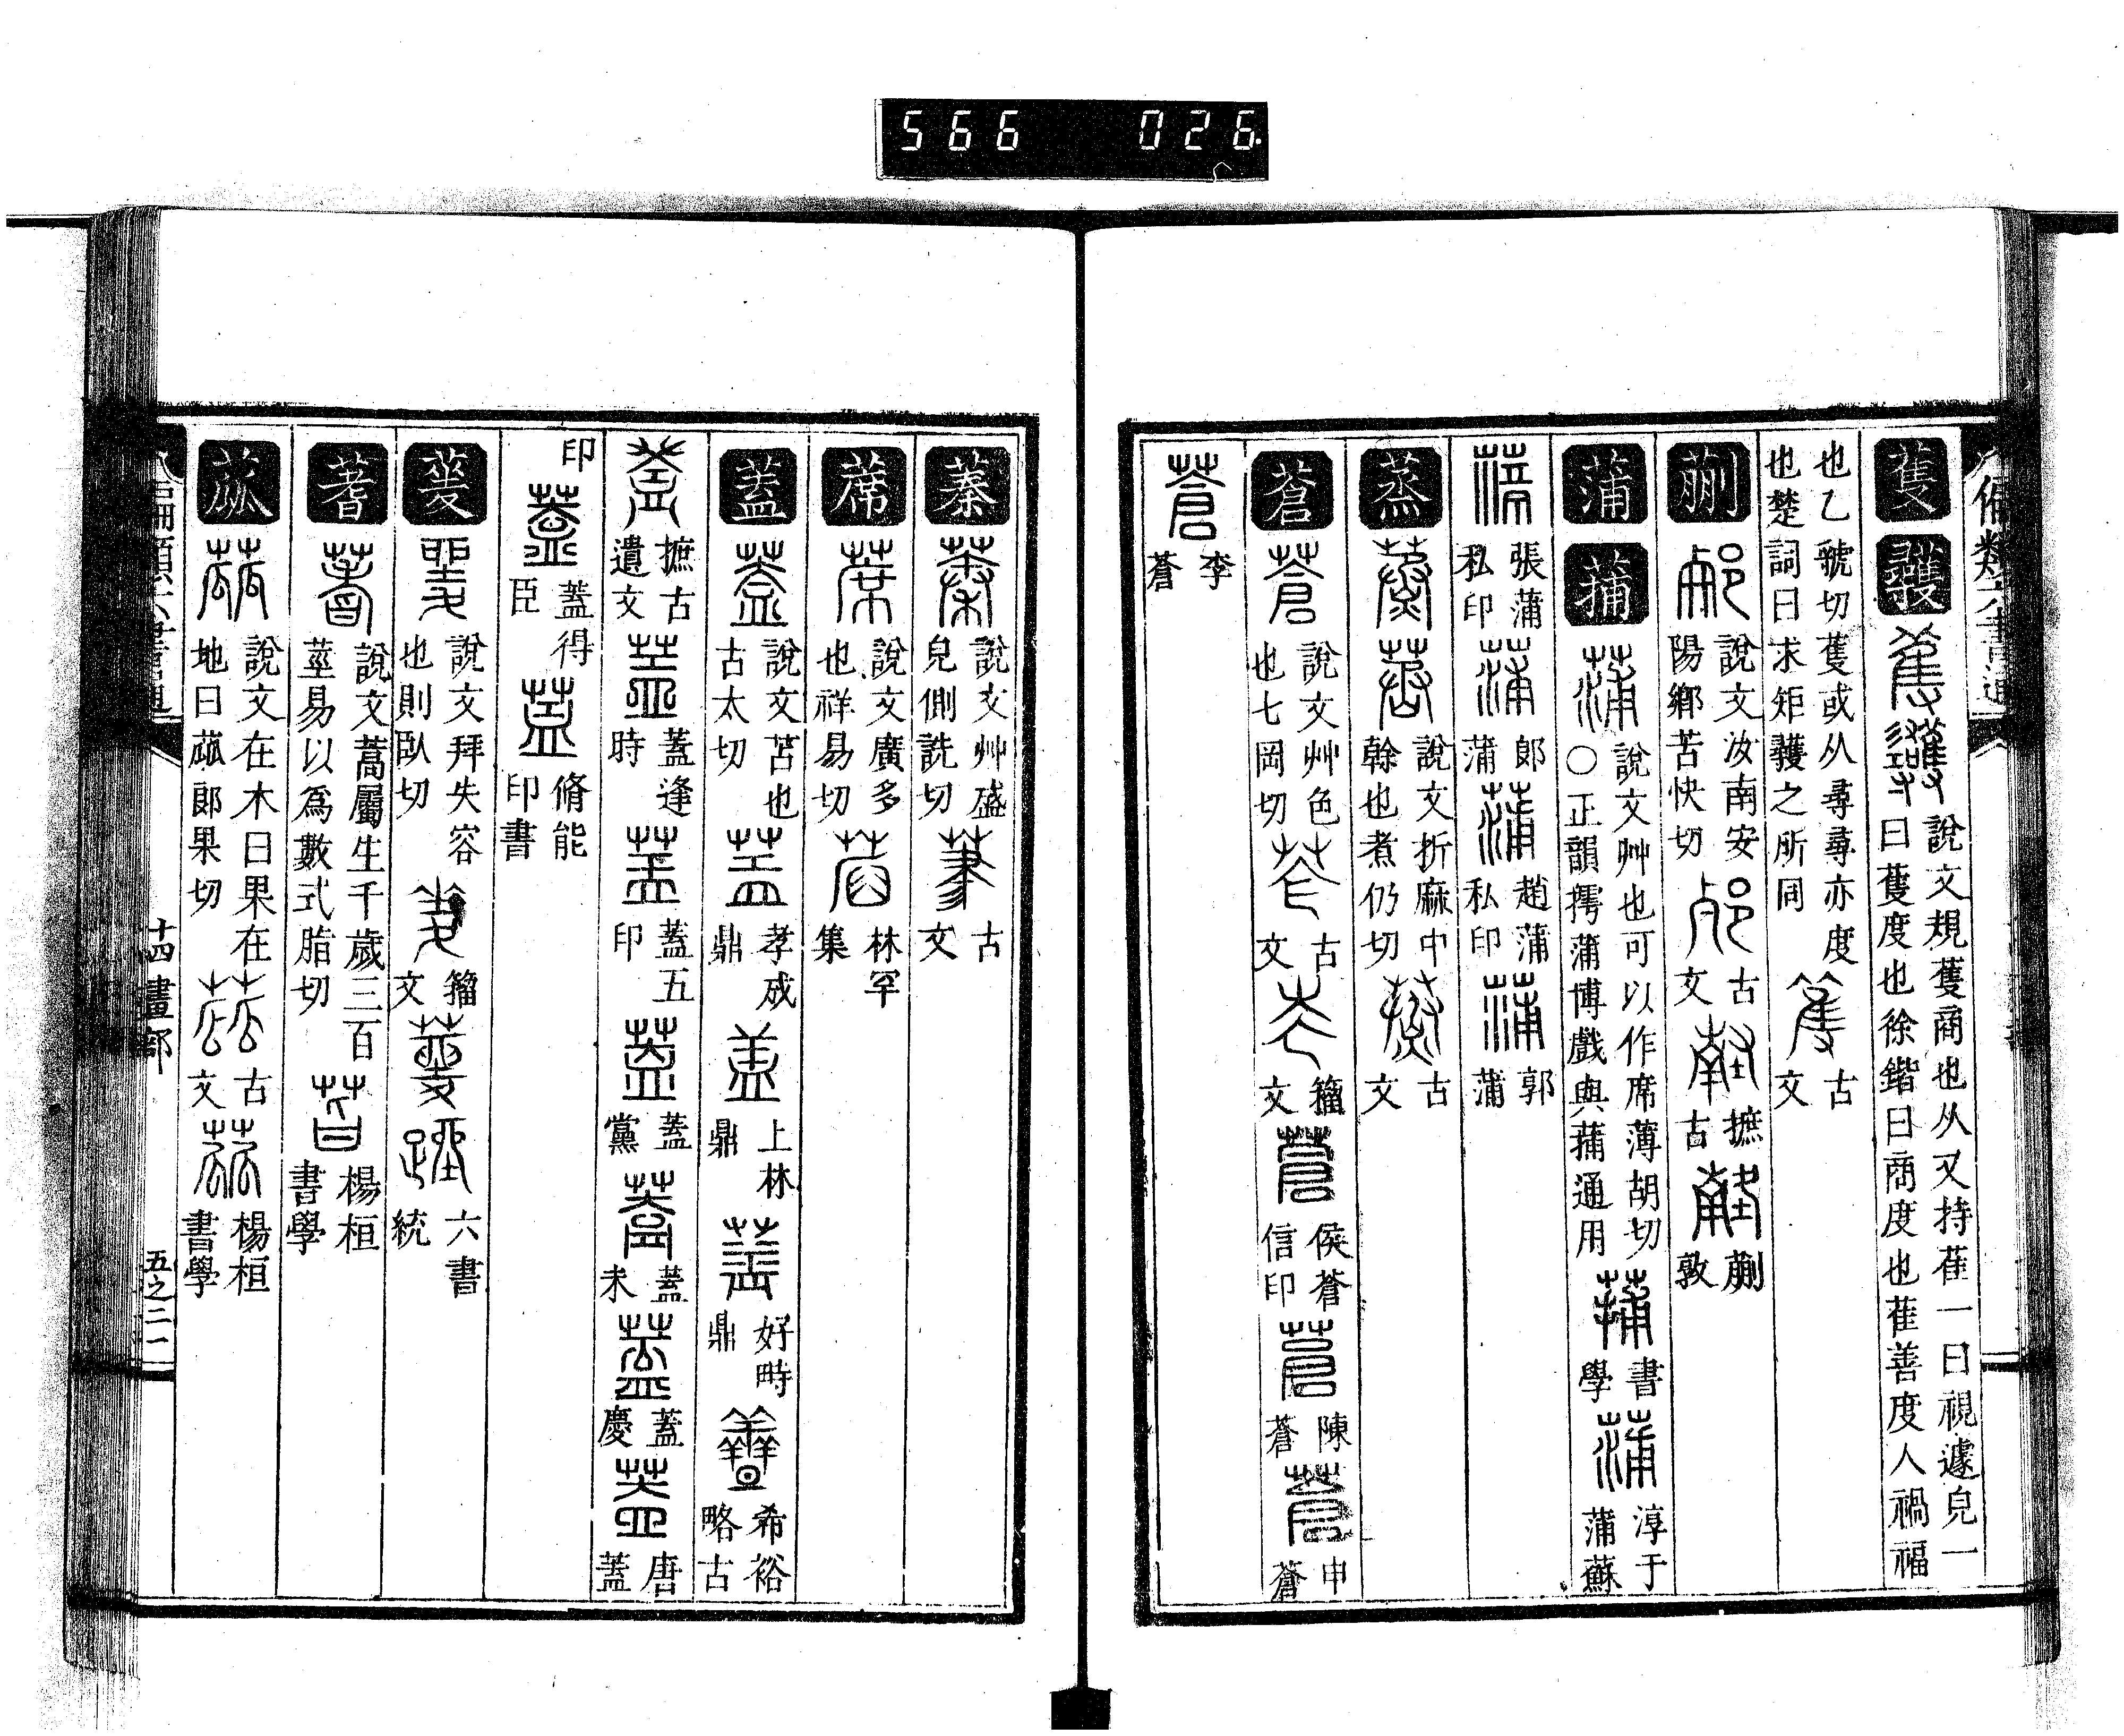 566 026
蒦 彠 說文規蒦商也从又持萑一曰視遽皃一
曰蒦度也徐鍇曰商度也萑善度人禍福
也乙虢切蒦或从尋尋亦度
也楚詞曰求矩彠之所同 古
文
蒯 說文汝南安
陽鄉苦快切 古
文 摭
古 蒯
敦
蒲 蒱 說文艸也可以作席薄胡切
○正韻摴蒲博戲與蒱通用 書
學 淳于
蒲蘇
張蒲
私印 郎
蒲 趙蒲
私印 郭
蒲
蒸 說文折麻中
榦也煮仍切 古
文
蒼 說文艸色
也七岡切 古
文 籀
文 侯蒼
信印 陳
蒼 申
蒼
李
蒼
蓁 說文艸盛
皃側詵切 古
文
蓆 說文廣多
也祥易切 林罕
集
蓋 說文苫也
古太切 孝成
鼎 上林
鼎 好畤
鼎 希裕
略古
摭古
遺文 蓋逢
時 蓋五
印 蓋
黨 蓋
未 蓋
慶 唐
蓋
印 蓋得
臣 脩能
印書
蓌 說文拜失容
也則臥切 籀
文 六書
統
蓍 說文蒿屬生千歲三百
莖易以爲數式脂切 楊桓
書學
蓏 說文在木曰果在
地曰蓏郎果切 古
文 楊桓
書學
十四畫部
五之二一